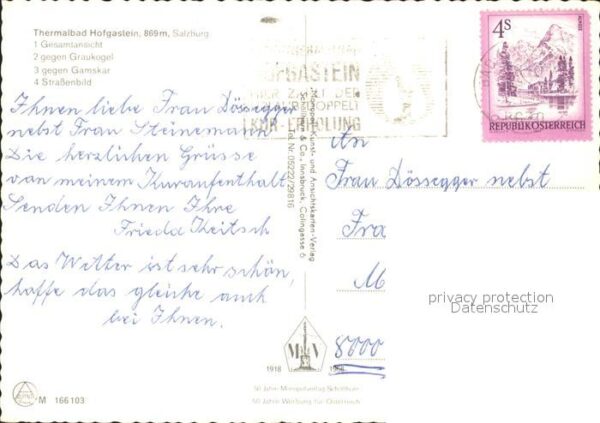 Thermalbad Hofgastein, 869m, Salzburg
1 Gesamtansicht
2 gegen Graukogel
3 gegen Gamskar
4 Straßenbild
Ihnen liebe Frau Dössegger
nebst Frau Steinemann
Die herzlichen Grüsse
von meinem Kuraufenthalt
Senden Ihnen Ihre
Frieda Keitsch
Das Wetter ist sehr schön,
hoffe das gleiche auch
bei Ihnen.
HOFGASTEIN
HIER ZÄHLT DER
DOPPELT
KUR-ERHOLUNG
4S
ALMSEE
REPUBLIK ÖSTERREICH
Kunst- und Ansichtskarten-Verlag
& Co., Innsbruck, Colingasse 6
Tel. Nr. 05222/29816
An
Frau Dössegger nebst
Fra
M
8000
privacy protection
Datenschutz
1918
1968
50 Jahre Monopolverlag
50 Jahre Werbung für Österreich
M 166 103